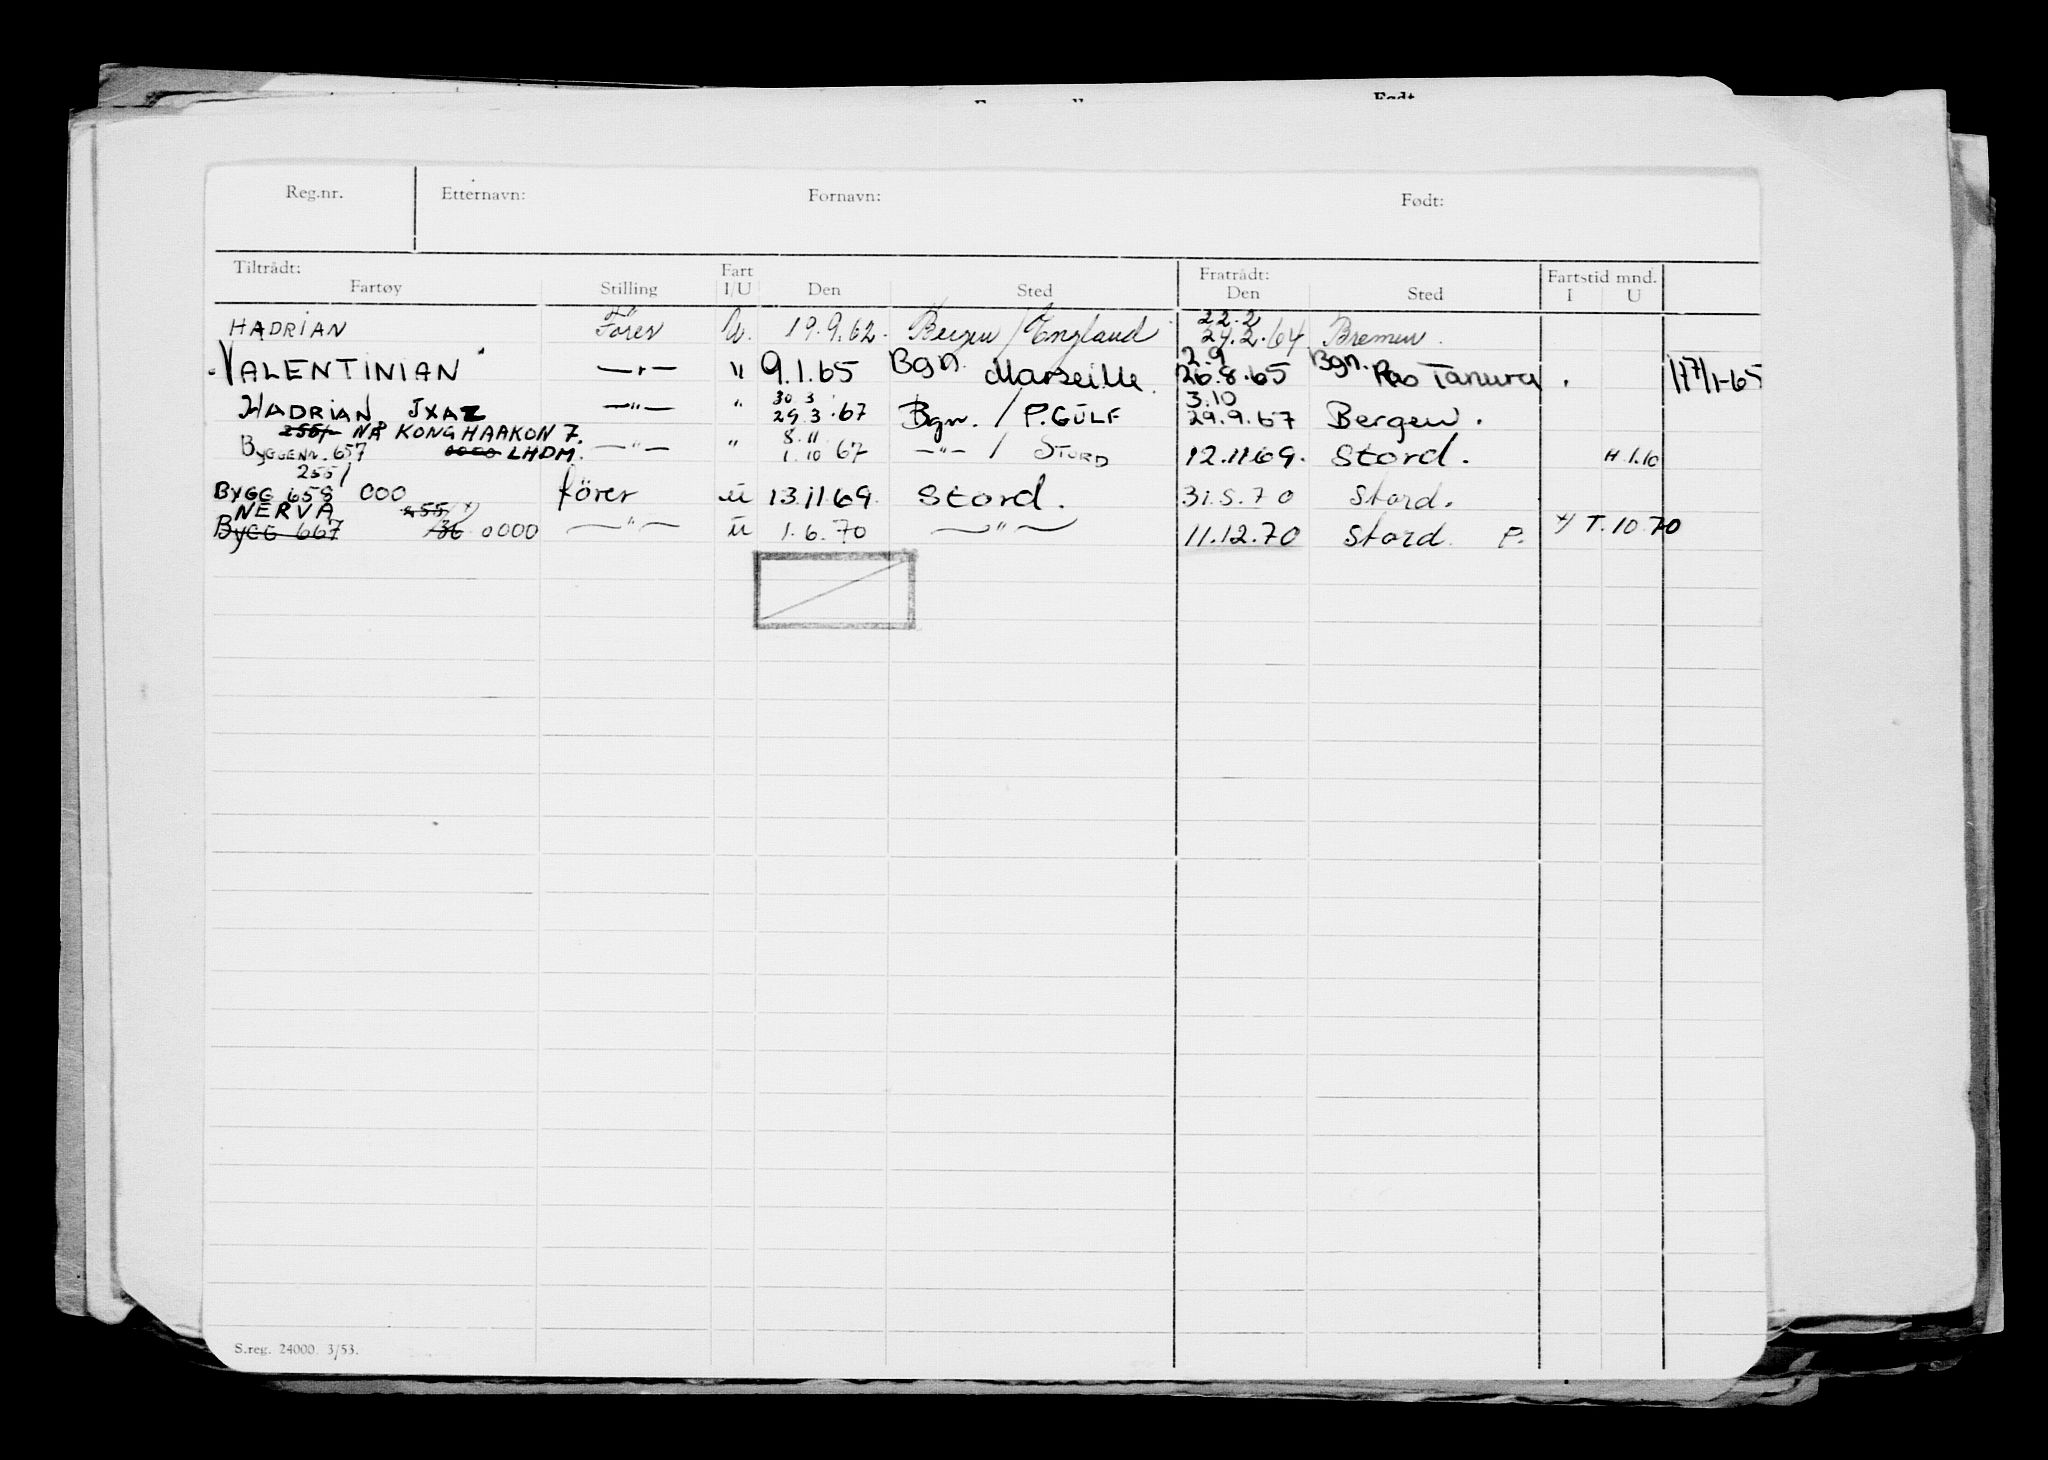 Reg.nr. Etternavn: Fornavn: Født:
Tiltrådt: Fartøy Stilling Fart I/U Den Sted Fratrådt: Den Sted Fartstid mnd. I U
HADRIAN Förer U. 19.9.62. Bergen / England 22.2 24.2.64 Bremen.
VALENTINIAN —"— " 9.1.65 Bgn. Marseille. 2.9 26.8.65 Bgn. Ras Tanura. 17/1-65
HADRIAN JXAZ —"— " 30.3 29.3.67 Bgn. / P.GULF 3.10 29.9.67 Bergen.
255/- NÅ KONG HAAKON 7.
Byggenr. 657 0000 LHDM. —"— " 8.11 1.10 67 —"— / STORD 12.11.69. Stord. H.1.10
255/
BYGG 658 000 förer u 13.11.69. Stord. 31.5.70 Stord.
NERVA 255/
BYGG 667 136 0000 —"— u 1.6.70 —"— 11.12.70 Stord. P. x/ T.10.70
S.reg. 24000. 3/53.